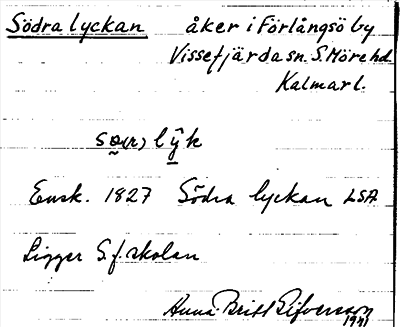 Södra lyckan åker i Förlångsö by
Vissefjärda sn. S. Möre hd.
Kalmar l.
Ensk. 1827 Södra lyckan LSA
Ligger S. f. skolan
Anna-Britt
1941